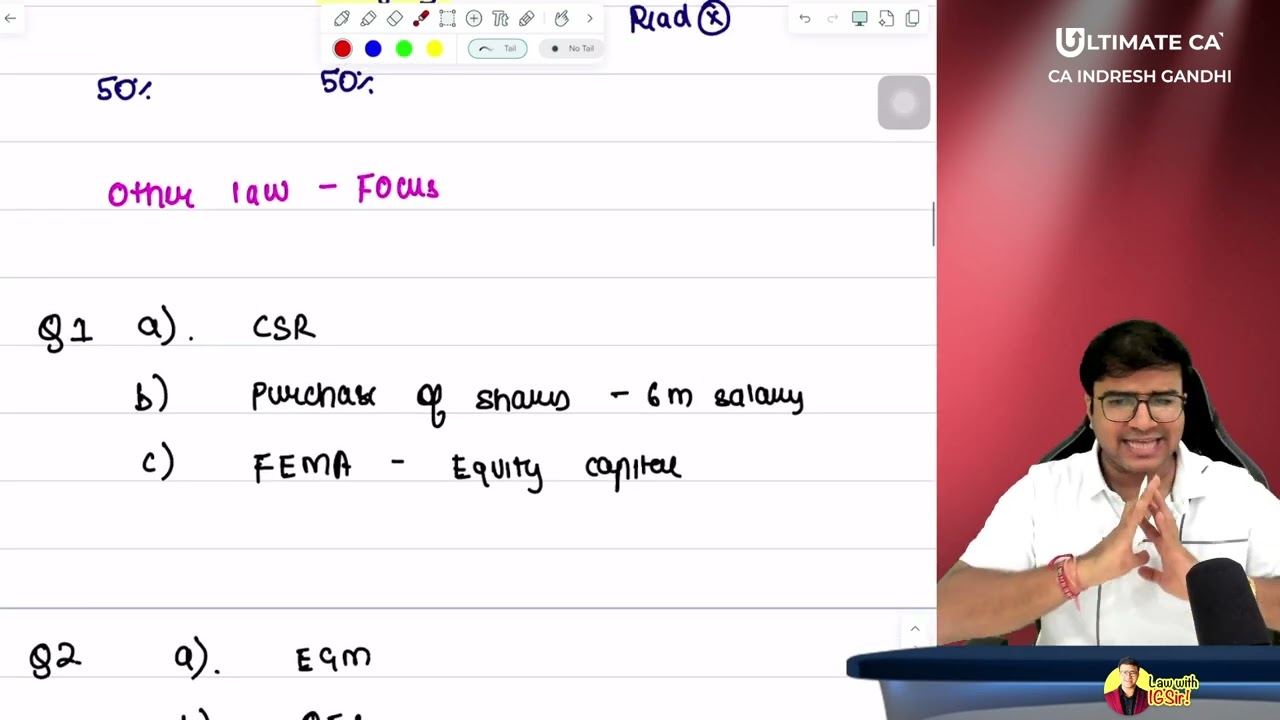 Read ⓧ
Tail
No Tail
50%
50%
Other law - Focus
Q1 a). CSR
b) Purchase of shares - 6m salary
c) FEMA - Equity capital
Q2 a). EGM
ULTIMATE CA
CA INDRESH GANDHI
Law with
IGSir!